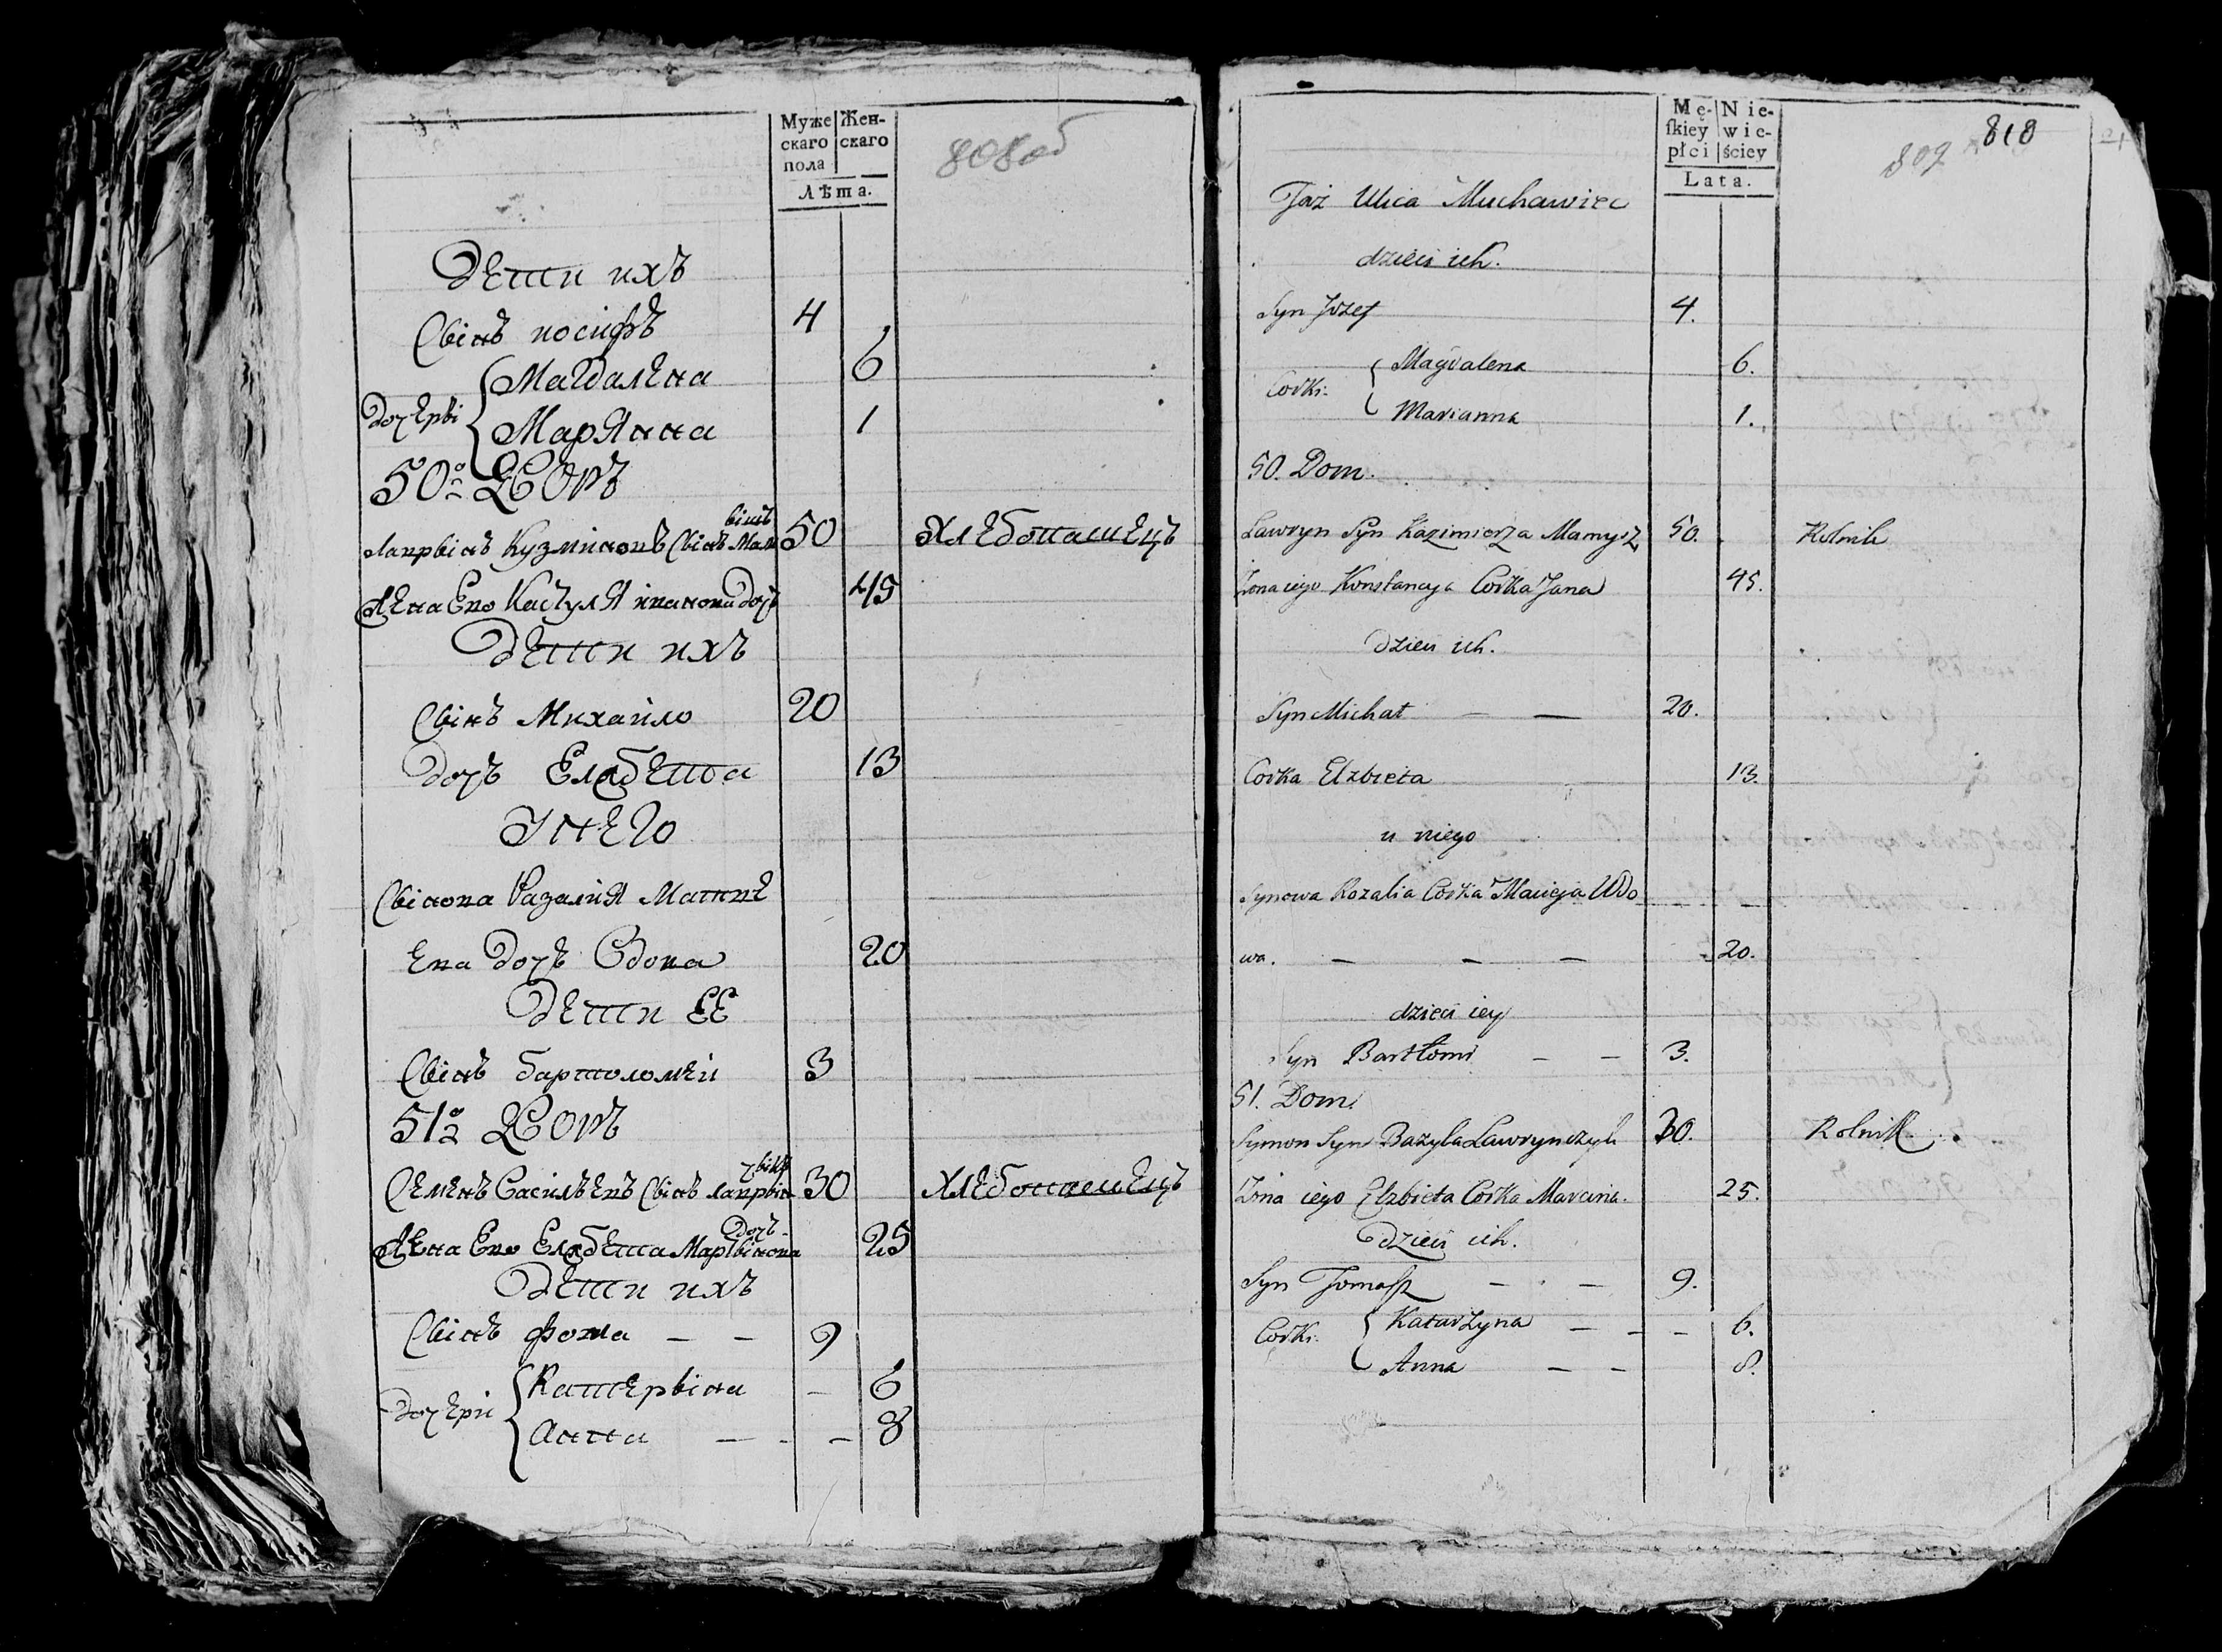 Муже
скаго
пола
Жен-
скаго
Лѣта.
808об
Дети ихъ
Сынъ иосифъ 4
Дочеры { Магдалена 6
Марянна 1
50й Дворъ
Лаврынъ Кузминовъ Сынъ Мамышъ 50 Хлебопашецъ
Жена Ево Иванова Дочь 45
Дети ихъ
Сынъ Михайло 20
Дочь Елжбета 13
У Него
Сынова Разалия Матве
ева Дочь Вдова 20
Дети ЕЕ
Сынъ бартоломей 3
51й Дворъ
Семенъ Васильевъ Сынъ Лаврынчыкъ 30 Хлебопашецъ
Жена Ево Елжбета Мартынова Дочь 25
Дети ихъ
Сынъ фома — — 9
Дочери { Катерына — 6
Анна — - — 8
Mę-
skiey
płci
Nie-
wie-
ściey
Lata.
809 810
Taż Ulica Muchawiec
dzieci ich.
Syn Jozef 4.
Corki { Magdalena 6.
Marianna 1.
50. Dom.
Lawryn Syn Kazimierza Mamysz 50. Rolnik
Żona iego Konstancya Corka Jana 45.
dzieci ich.
Syn Michał — — 20.
Corka Elzbieta 13.
u niego
Synowa Rozalia Corka Macieja Wdo
wa. — — — 20.
dzieci iey
Syn Bartłomi — — 3.
51. Dom.
Symon Syn Bazyla Lawrynczyk 30. Rolnik
Żona iego Elzbieta Corka Marcina. 25.
dzieci ich.
Syn Tomasz — - — 9.
Corki { Katarzyna — — — 6.
Anna — — 8.